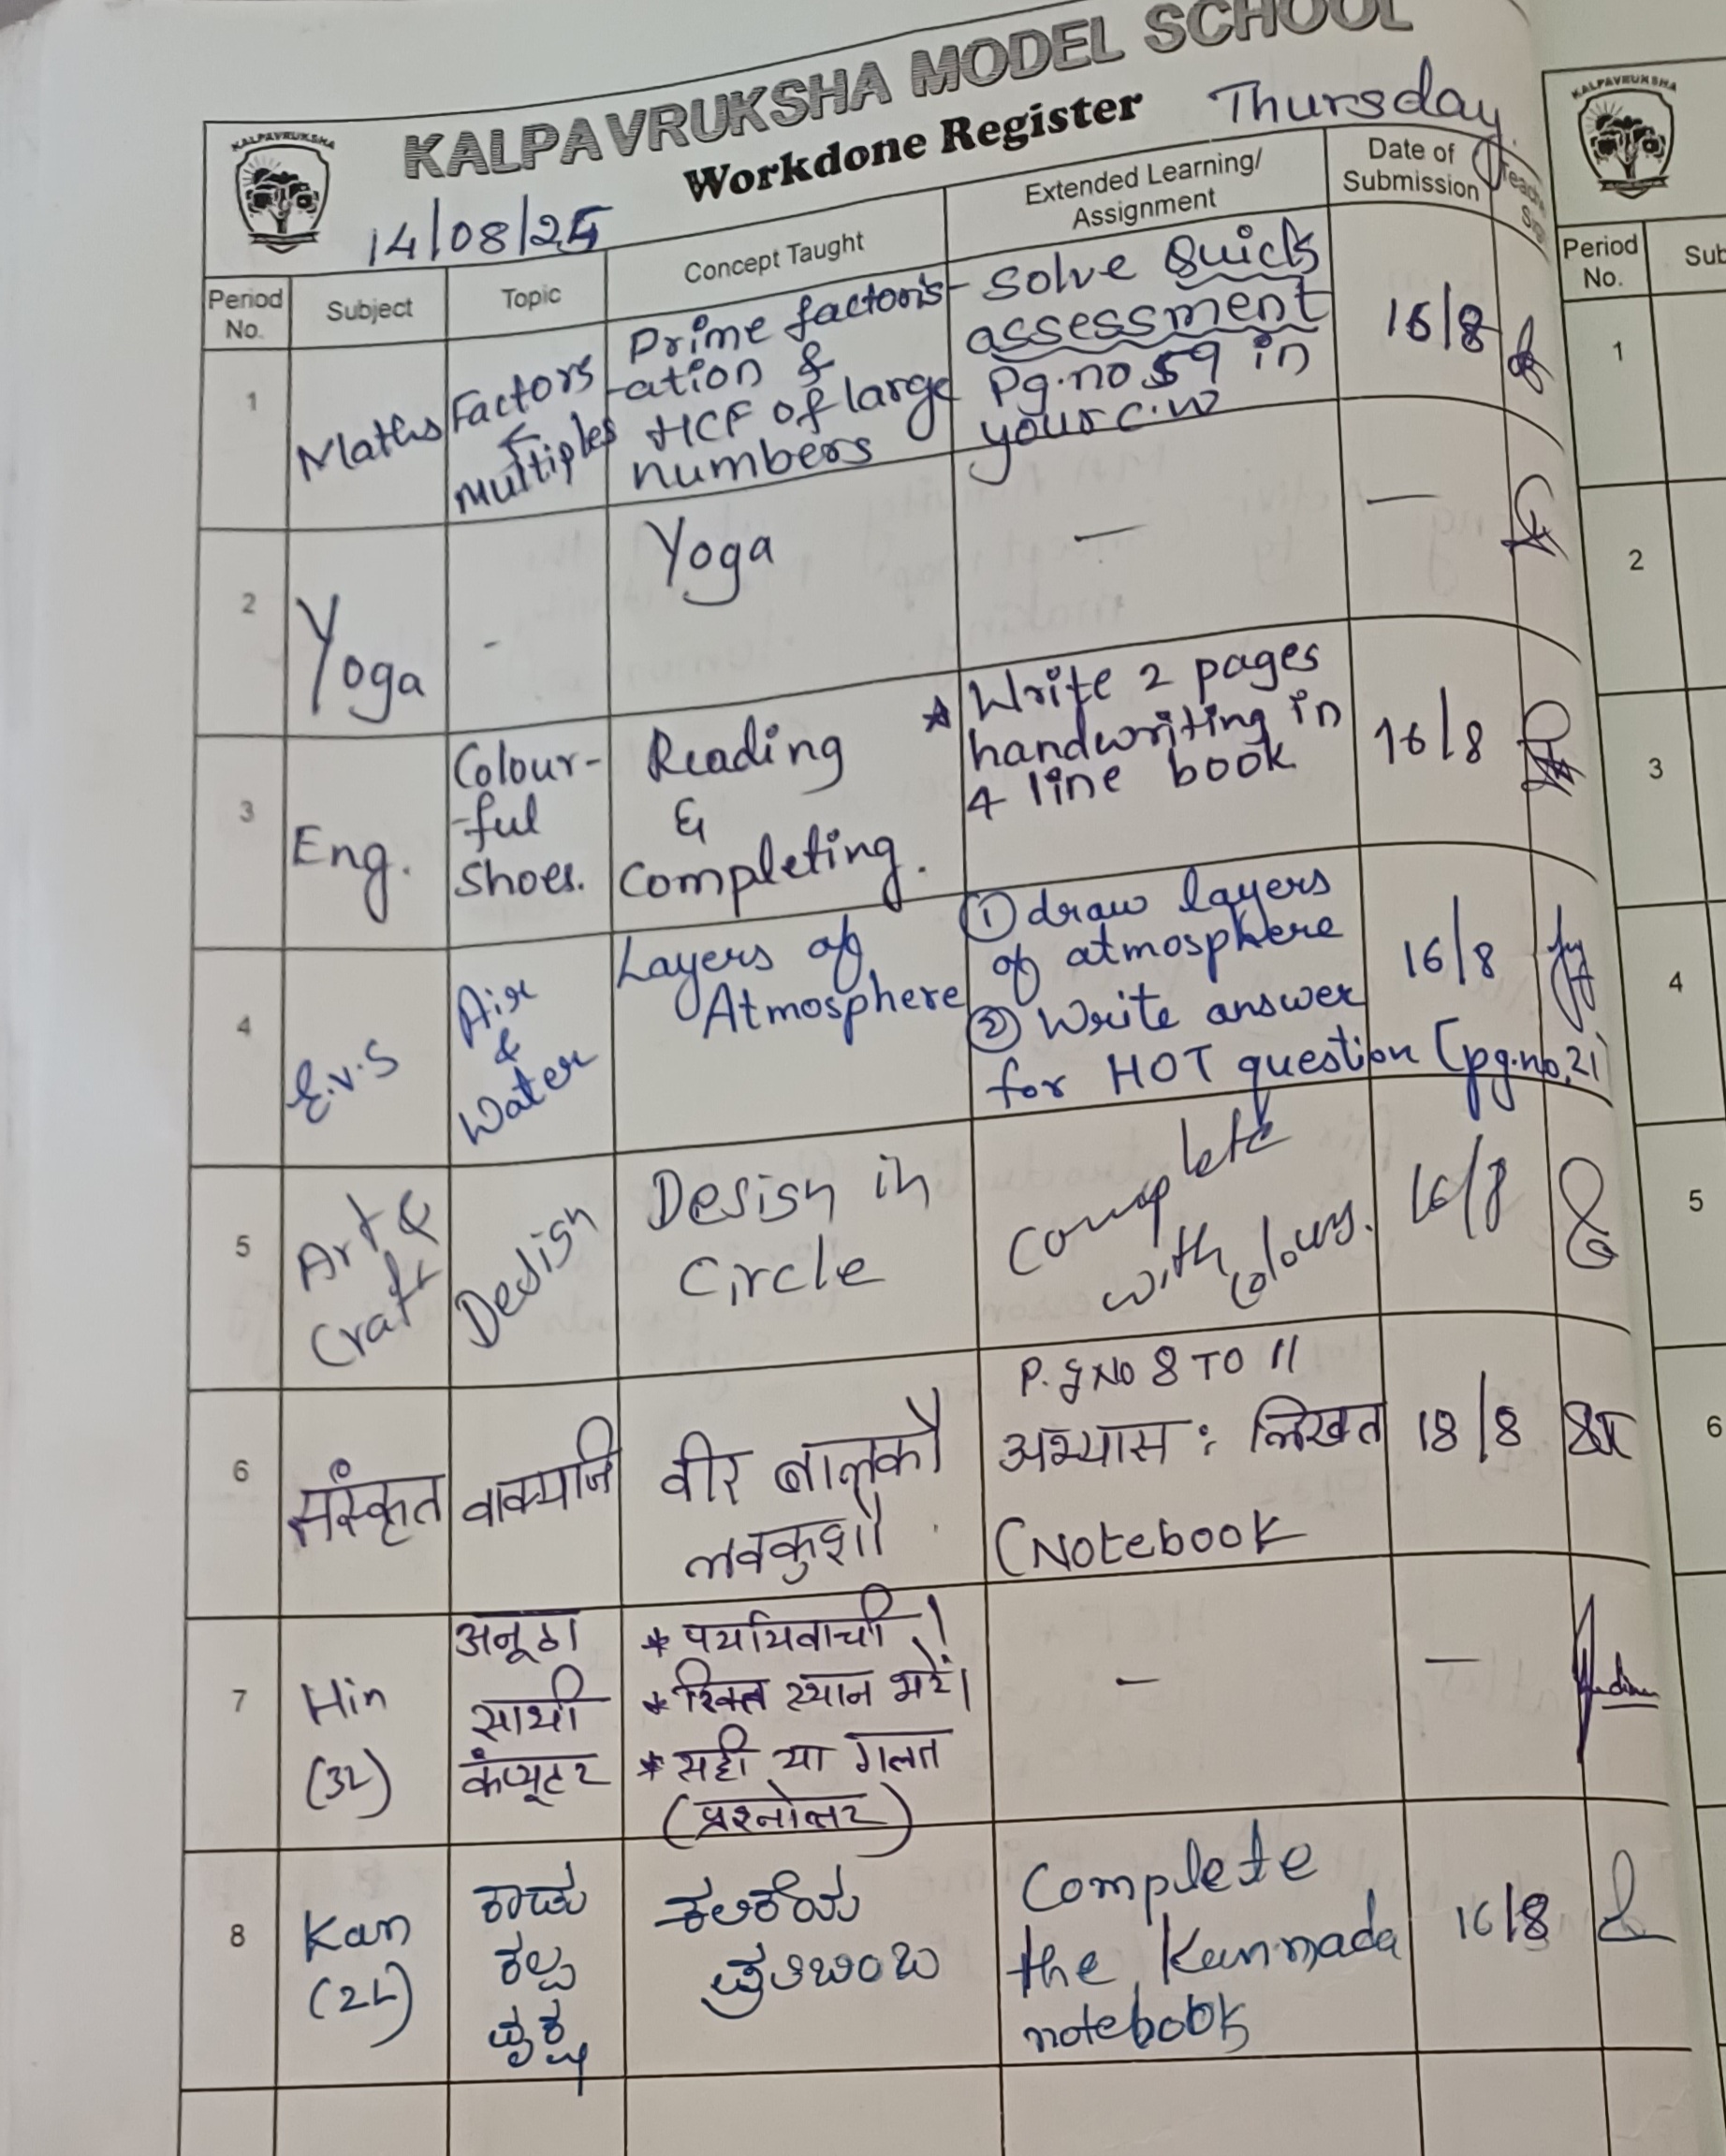 KALPAVRUKSHA MODEL SCHOOL
KALPAVRUKSHA
Workdone Register
Thursday
14/08/25
Period No.
Subject
Topic
Concept Taught
Extended Learning/
Assignment
Date of
Submission
1
Maths
Factors
&
Multiples
Prime factoris-
-ation &
HCF of large
numbers
Solve Quick
assessment
Pg.no 59 in
your c.w
16/8
2
Yoga
-
Yoga
—
—
3
Eng.
Colour-
-ful
Shoes.
Reading
&
Completing.
* Write 2 pages
handwriting in
4 line book
16/8
4
E.v.S
Air
&
Water
Layers of
Atmosphere
① draw layers
of atmosphere
② Write answer
for HOT question [pg.no.21
16/8
5
Art &
Craft
Design
Design in
Circle
Complete
with colours.
16/8
6
संस्कृत
वाक्यानि
वीर बालकौ
लवकुशौ
P.g NO 8 TO 11
अभ्यास : लिखत
(Notebook
18/8
7
Hin
(3L)
अनूठा
साथी
कंप्यूटर
* पर्यायवाची।
* रिक्त स्थान भरें।
* सही या गलत
(प्रश्नोत्तर)
—
—
8
Kan
(2L)
ಕಾಡು
ಕಲ್ಪ
ವೃಕ್ಷ
ಕಲಿಕೆಯ
ಪ್ರತಿಬಿಂಬ
Complete
the Kannada
notebook
16/8
KALPAVRUKSHA
Period
No.
Sub
1
2
3
4
5
6